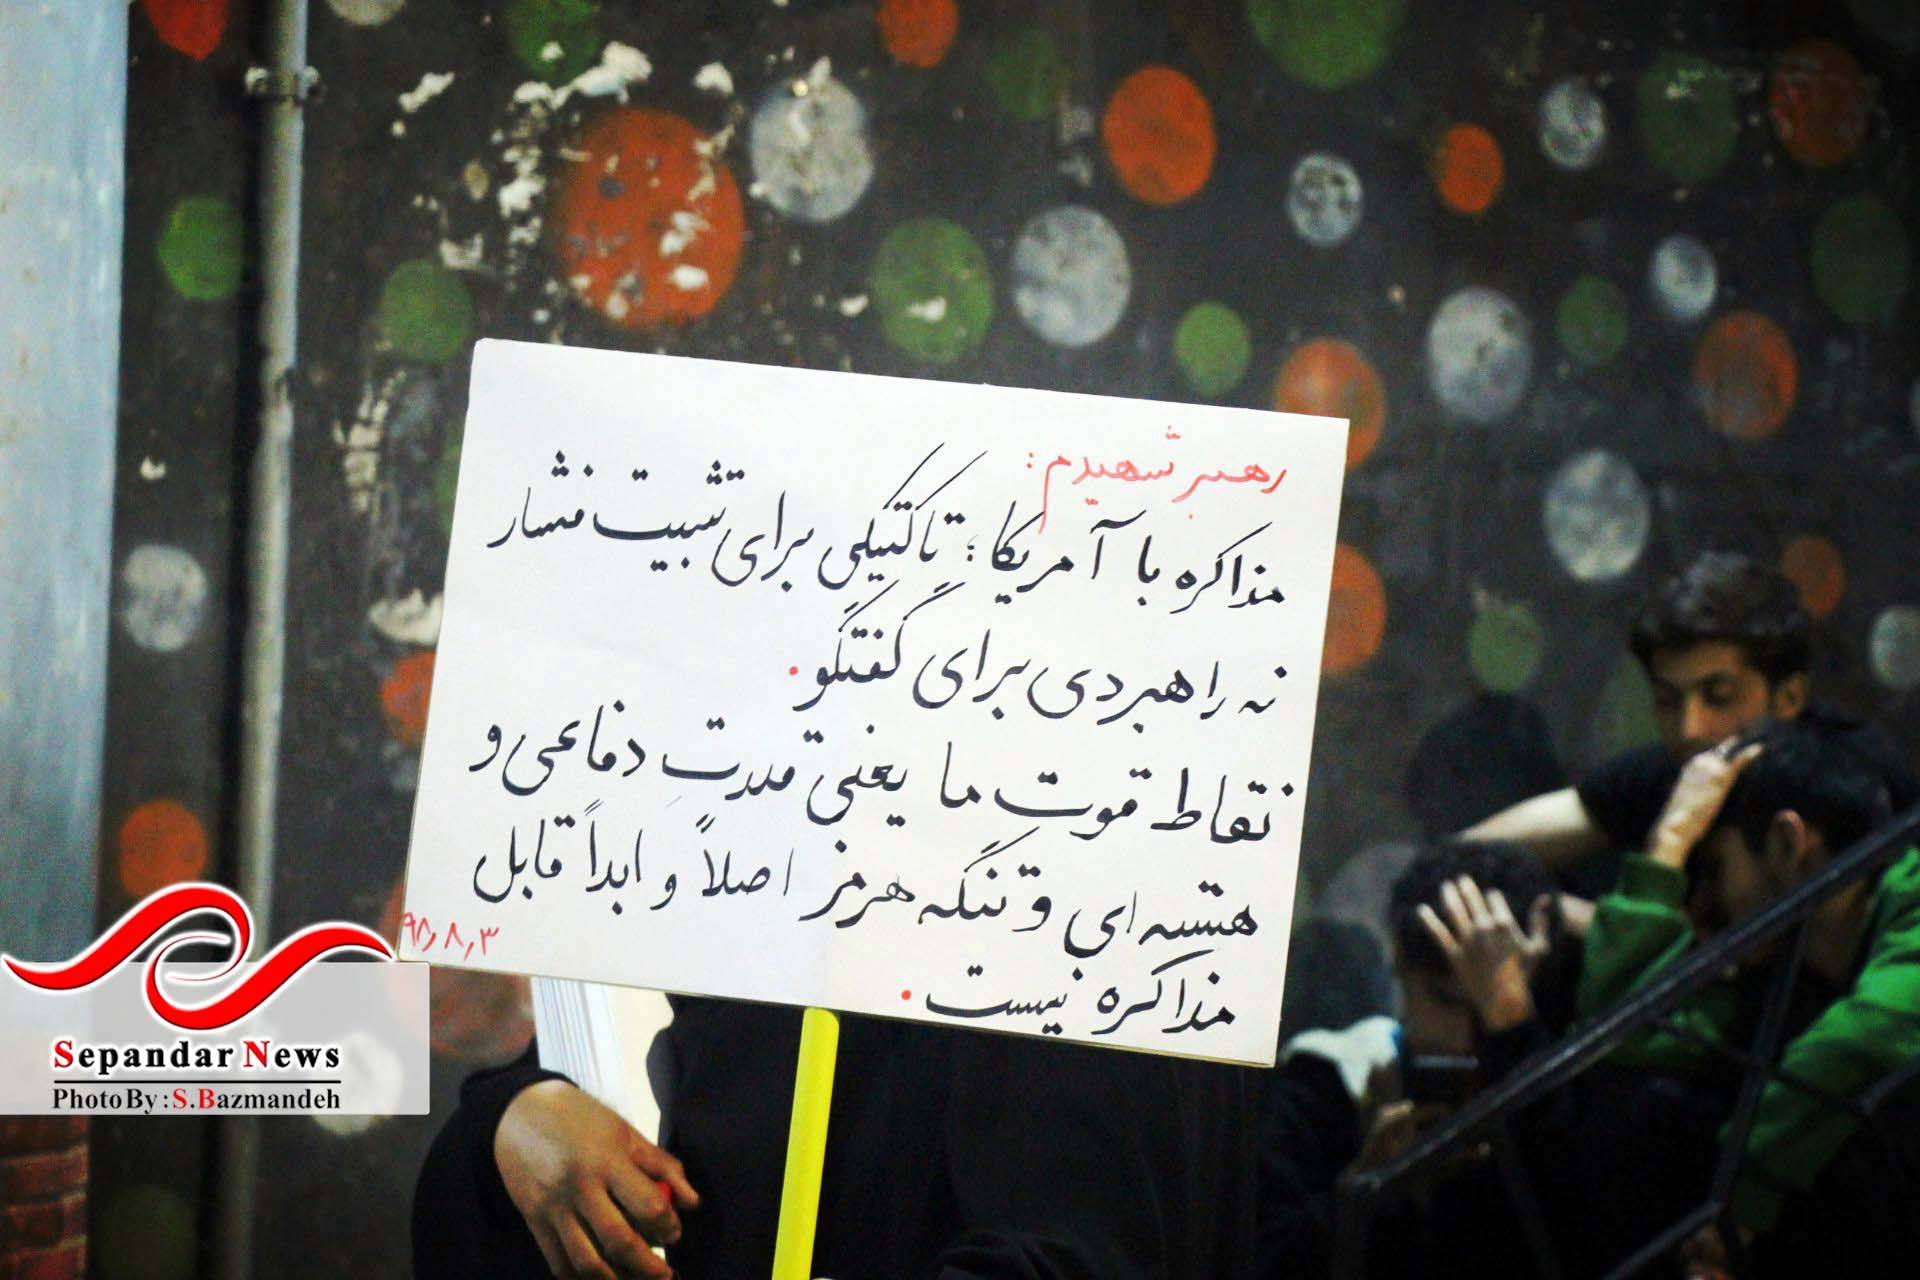 رهبر شهیدم:
مذاکره با آمریکا؛ تاکتیکی برای تثبیت فشار
نه راهبردی برای گفتگو.
نقاط قوتِ ما یعنی قدرتِ دفاعی و
هسته ای و تنگه هرمز اصلاً و ابداً قابل
مذاکره نیست.
۹۵٫۸٫۳
Sepandar News
Photo By : S.Bazmandeh